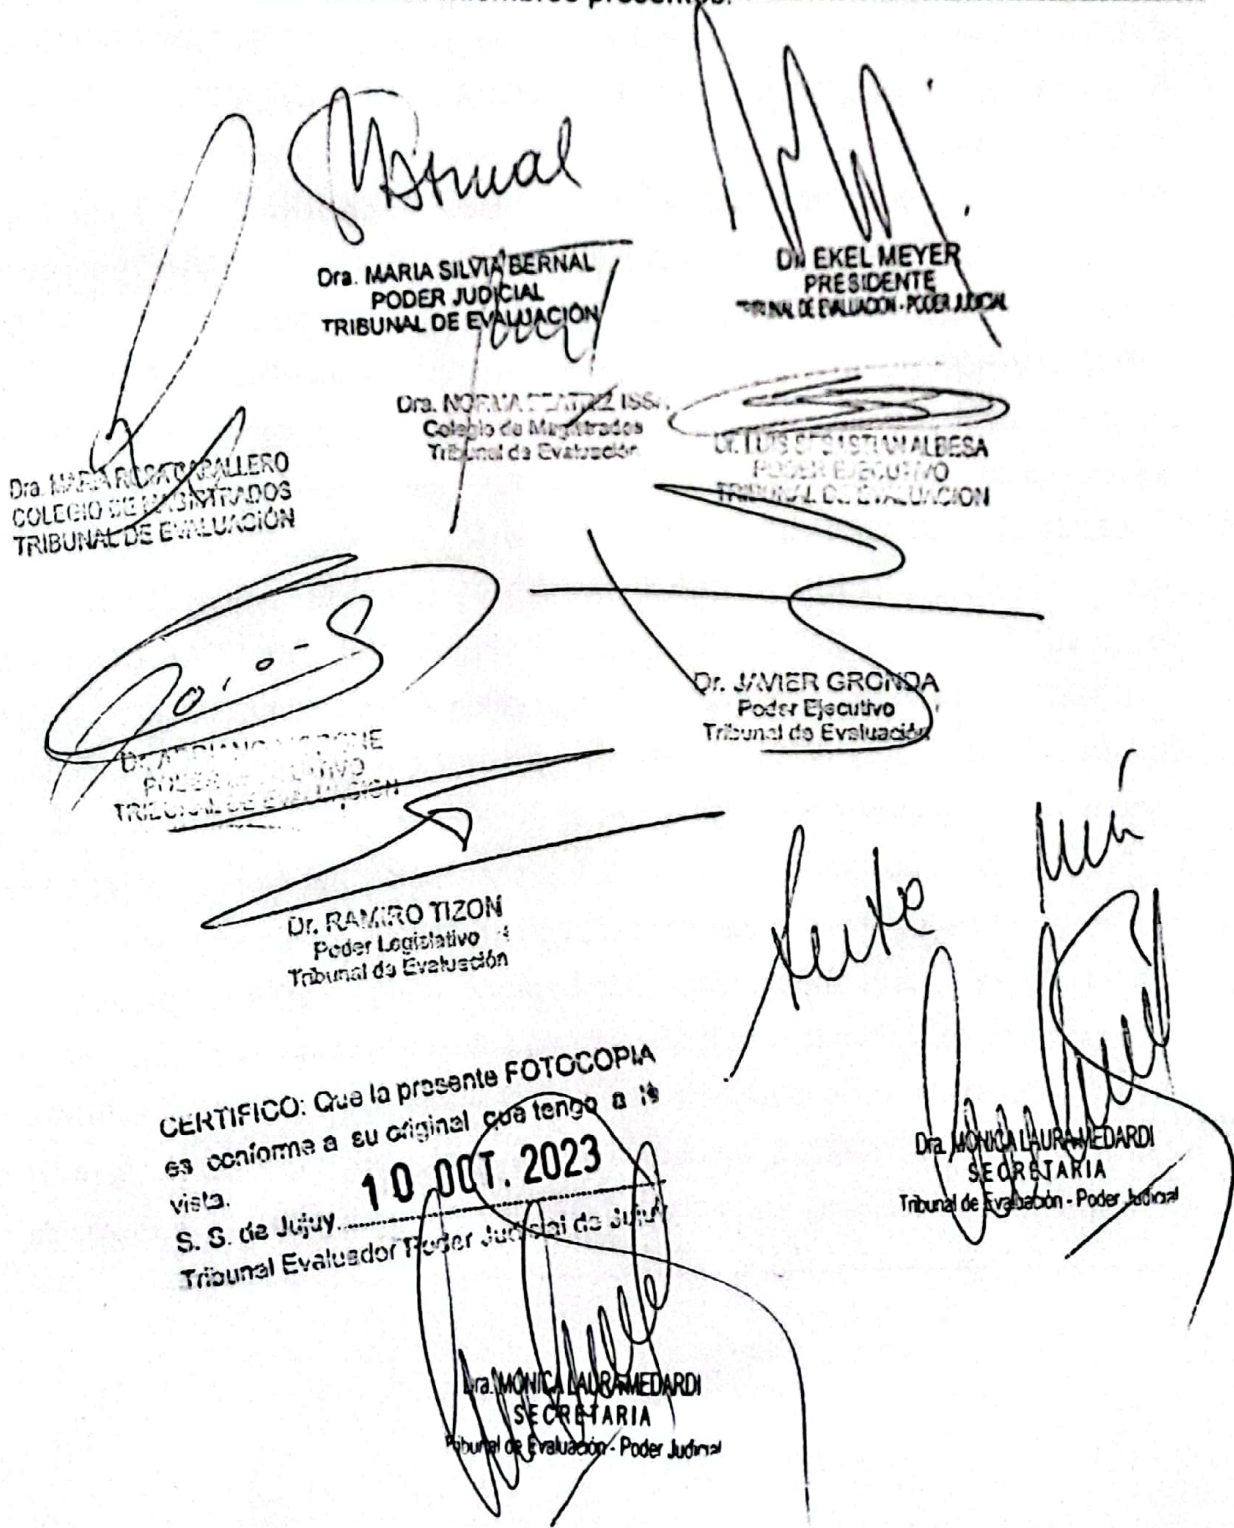 miembros presentes.
Dra. MARIA SILVIA BERNAL
PODER JUDICIAL
TRIBUNAL DE EVALUACIÓN
EKEL MEYER
PRESIDENTE
TRIBUNAL DE EVALUACION - PODER JUDICIAL
Dra. NORMA BEATRIZ ISSA
Colegio de Magistrados
Tribunal de Evaluación
Dr. LUIS SEBASTIAN ALBESA
PODER EJECUTIVO
TRIBUNAL DE EVALUACION
Dra. MARIA ROSA CABALLERO
COLEGIO DE MAGISTRADOS
TRIBUNAL DE EVALUACIÓN
Dr. JAVIER GRONDA
Poder Ejecutivo
Tribunal de Evaluación
PODER
TRIBUNAL DE EVALUACION
Dr. RAMIRO TIZON
Poder Legislativo
Tribunal de Evaluación
Ante mí
CERTIFICO: Que la presente FOTOCOPIA
es conforme a su original que tengo a la
vista.
10 OCT. 2023
S. S. de Jujuy,
Tribunal Evaluador Poder Judicial de Jujuy
Dra. MONICA LAURA MEDARDI
SECRETARIA
Tribunal de Evaluación - Poder Judicial
Dra. MONICA LAURA MEDARDI
SECRETARIA
Tribunal de Evaluación - Poder Judicial